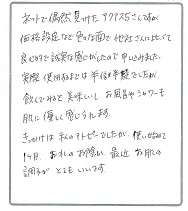 ネットで偶然見つけたアクアス5さんですが
価格設定など色々な面で他社さんに比べて
良心的で誠実な感じがしたので申し込みました。
実際使用するまでは半信半疑でしたが、
飲んでみると美味しいし、お風呂やシャワーも
肌に優しく感じられます。
きっかけは私のアトピーでしたが、使い始めて
1ヶ月、あれのお陰か、最近お肌の
調子がとてもいいです。